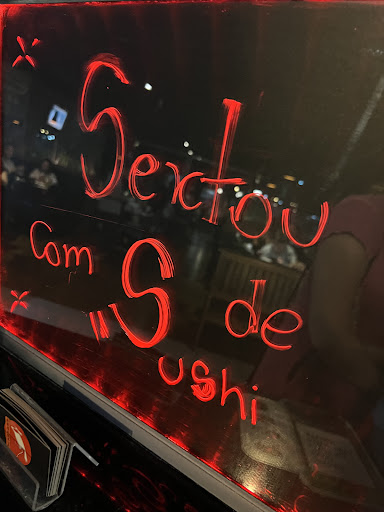 Sextou
Com "S de
Sushi